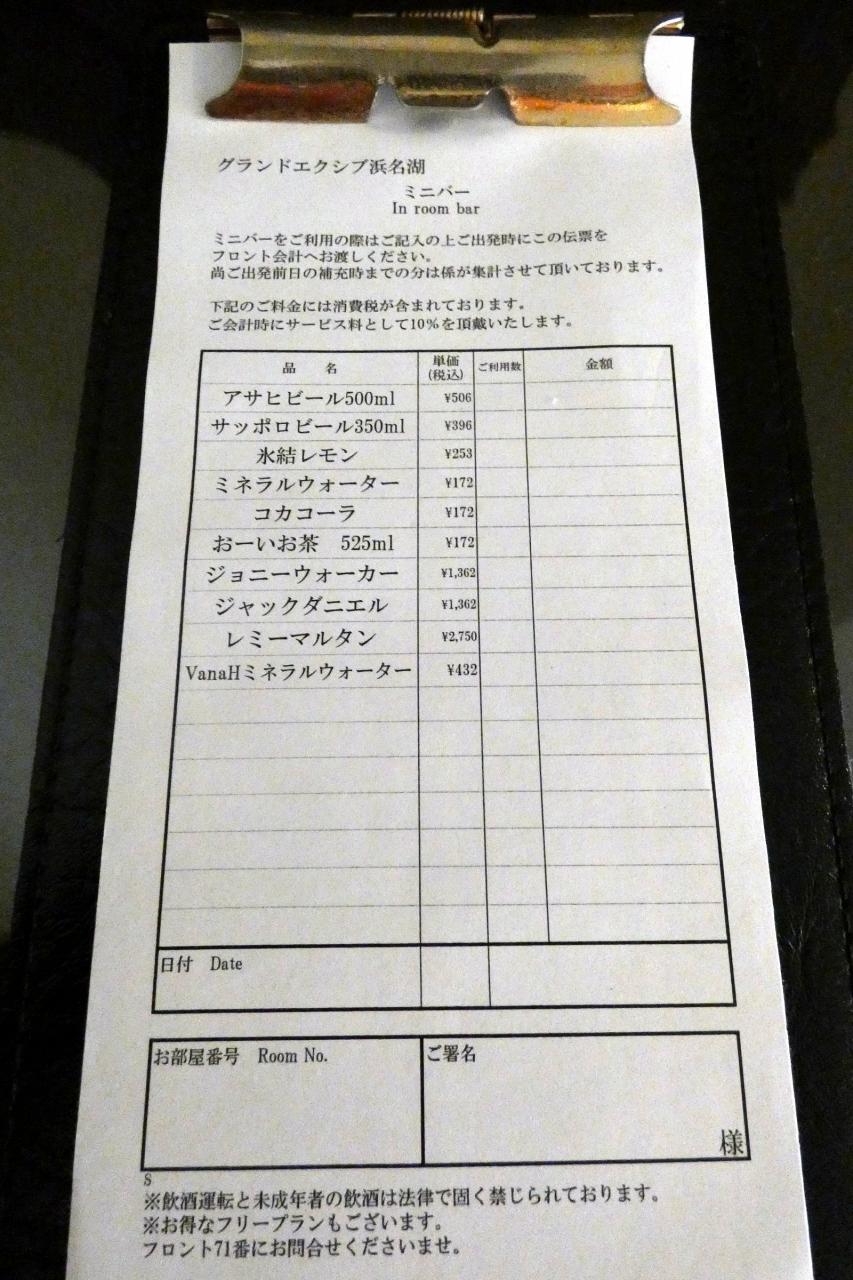 グランドエクシブ浜名湖
ミニバー
In room bar
ミニバーをご利用の際はご記入の上ご出発時にこの伝票を
フロント会計へお渡しください。
尚ご出発前日の補充時までの分は係が集計させて頂いております。
下記のご料金には消費税が含まれております。
ご会計時にサービス料として10%を頂戴いたします。
品　名 単価(税込) ご利用数 金額
アサヒビール500ml ¥506
サッポロビール350ml ¥396
氷結レモン ¥253
ミネラルウォーター ¥172
コカコーラ ¥172
おーいお茶　525ml ¥172
ジョニーウォーカー ¥1,362
ジャックダニエル ¥1,362
レミーマルタン ¥2,750
VanaHミネラルウォーター ¥432
日付　Date
お部屋番号　Room No. ご署名
様
S
※飲酒運転と未成年者の飲酒は法律で固く禁じられております。
※お得なフリープランもございます。
フロント71番にお問合せくださいませ。